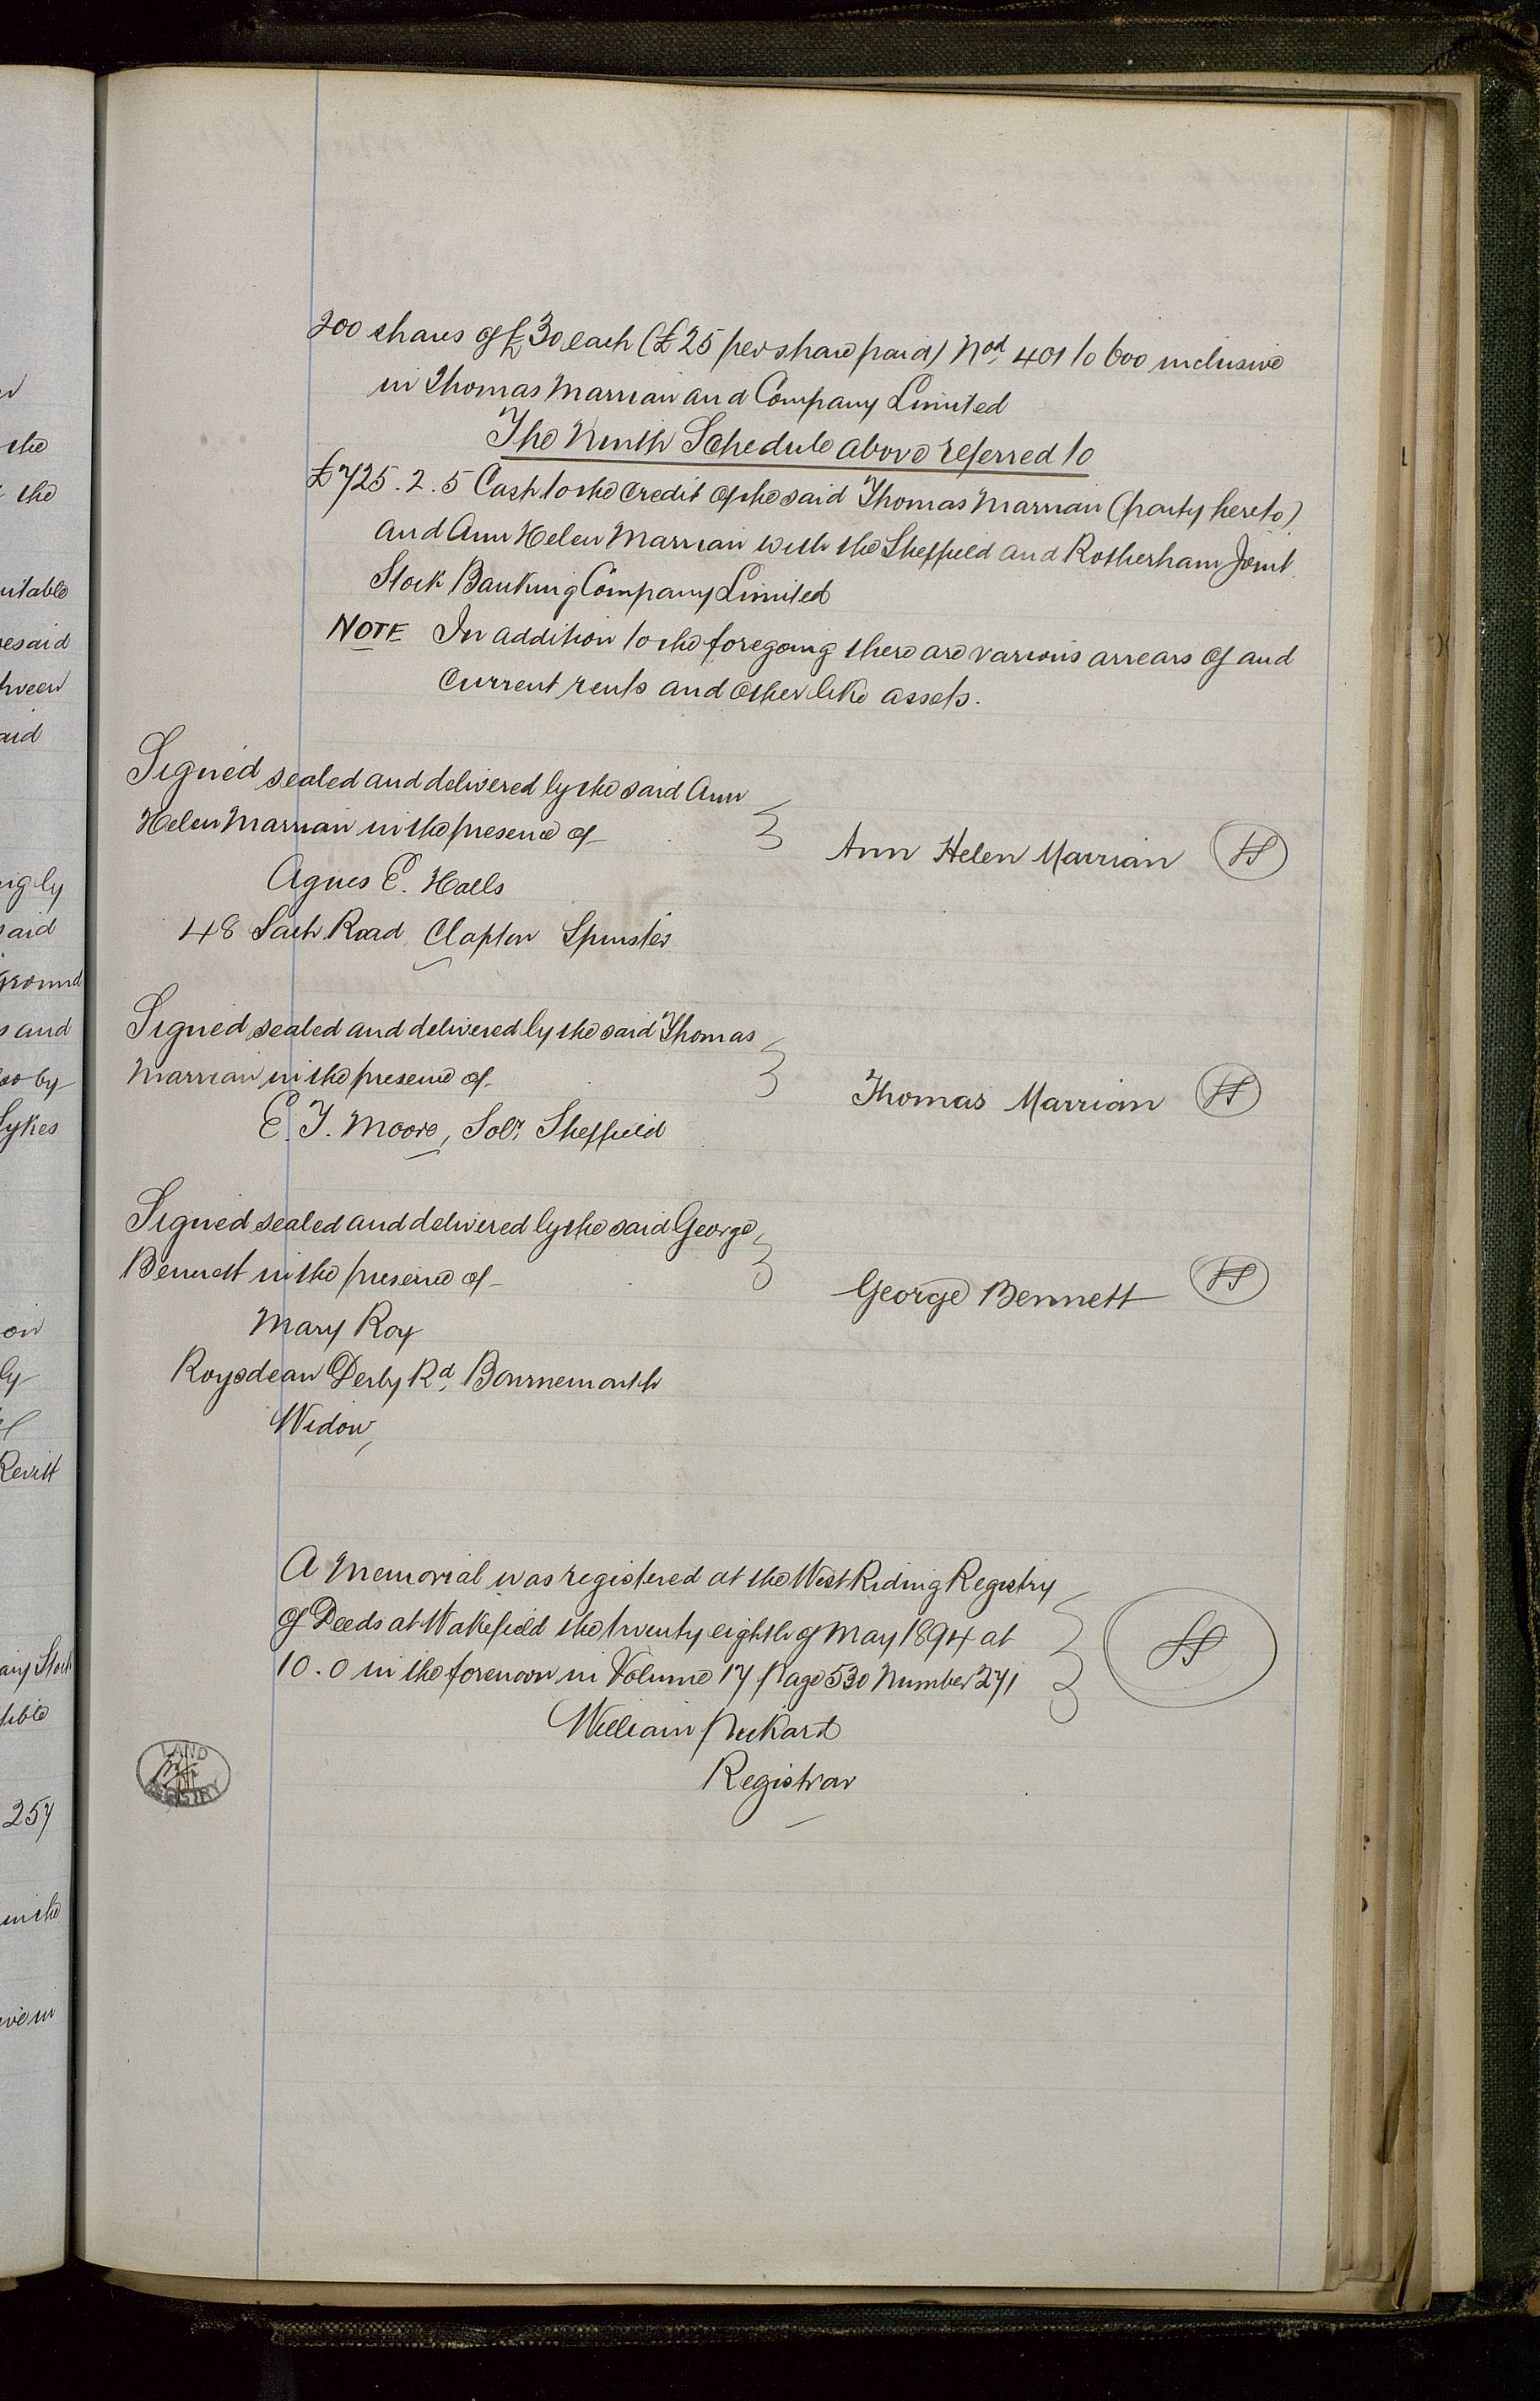 200 shares of £30 each (£25 per share paid) Nos. 401 to 600 inclusive
in Thomas Marrian and Company Limited
The Ninth Schedule above referred to
£725.2.5 Cash to the credit of the said Thomas Marrian (party hereto)
and Ann Helen Marrian with the Sheffield and Rotherham Joint
Stock Banking Company Limited
NOTE In addition to the foregoing there are various arrears of and
current rents and other like assets.
Signed sealed and delivered by the said Ann
Helen Marrian in the presence of
Ann Helen Marrian
Agnes E. Halls
48 Road, Clapton Spinster
Signed sealed and delivered by the said Thomas
Marrian in the presence of
Thomas Marrian
E. T. Moore, Solr. Sheffield
Signed sealed and delivered by the said George
Bennett in the presence of
George Bennett
Mary Roy
Roysdean Derby Rd, Bournemouth
Widow,
A Memorial was registered at the West Riding Registry
of Deeds at Wakefield the twenty eighth of May 1894 at
10.0 in the forenoon in Volume 17 Page 530 Number 271
William Pickard
Registrar
LAND
REGISTRY
the
the
esaid
aid
said
ground
and
by
Sykes
on
ly
Revitt
257
in the